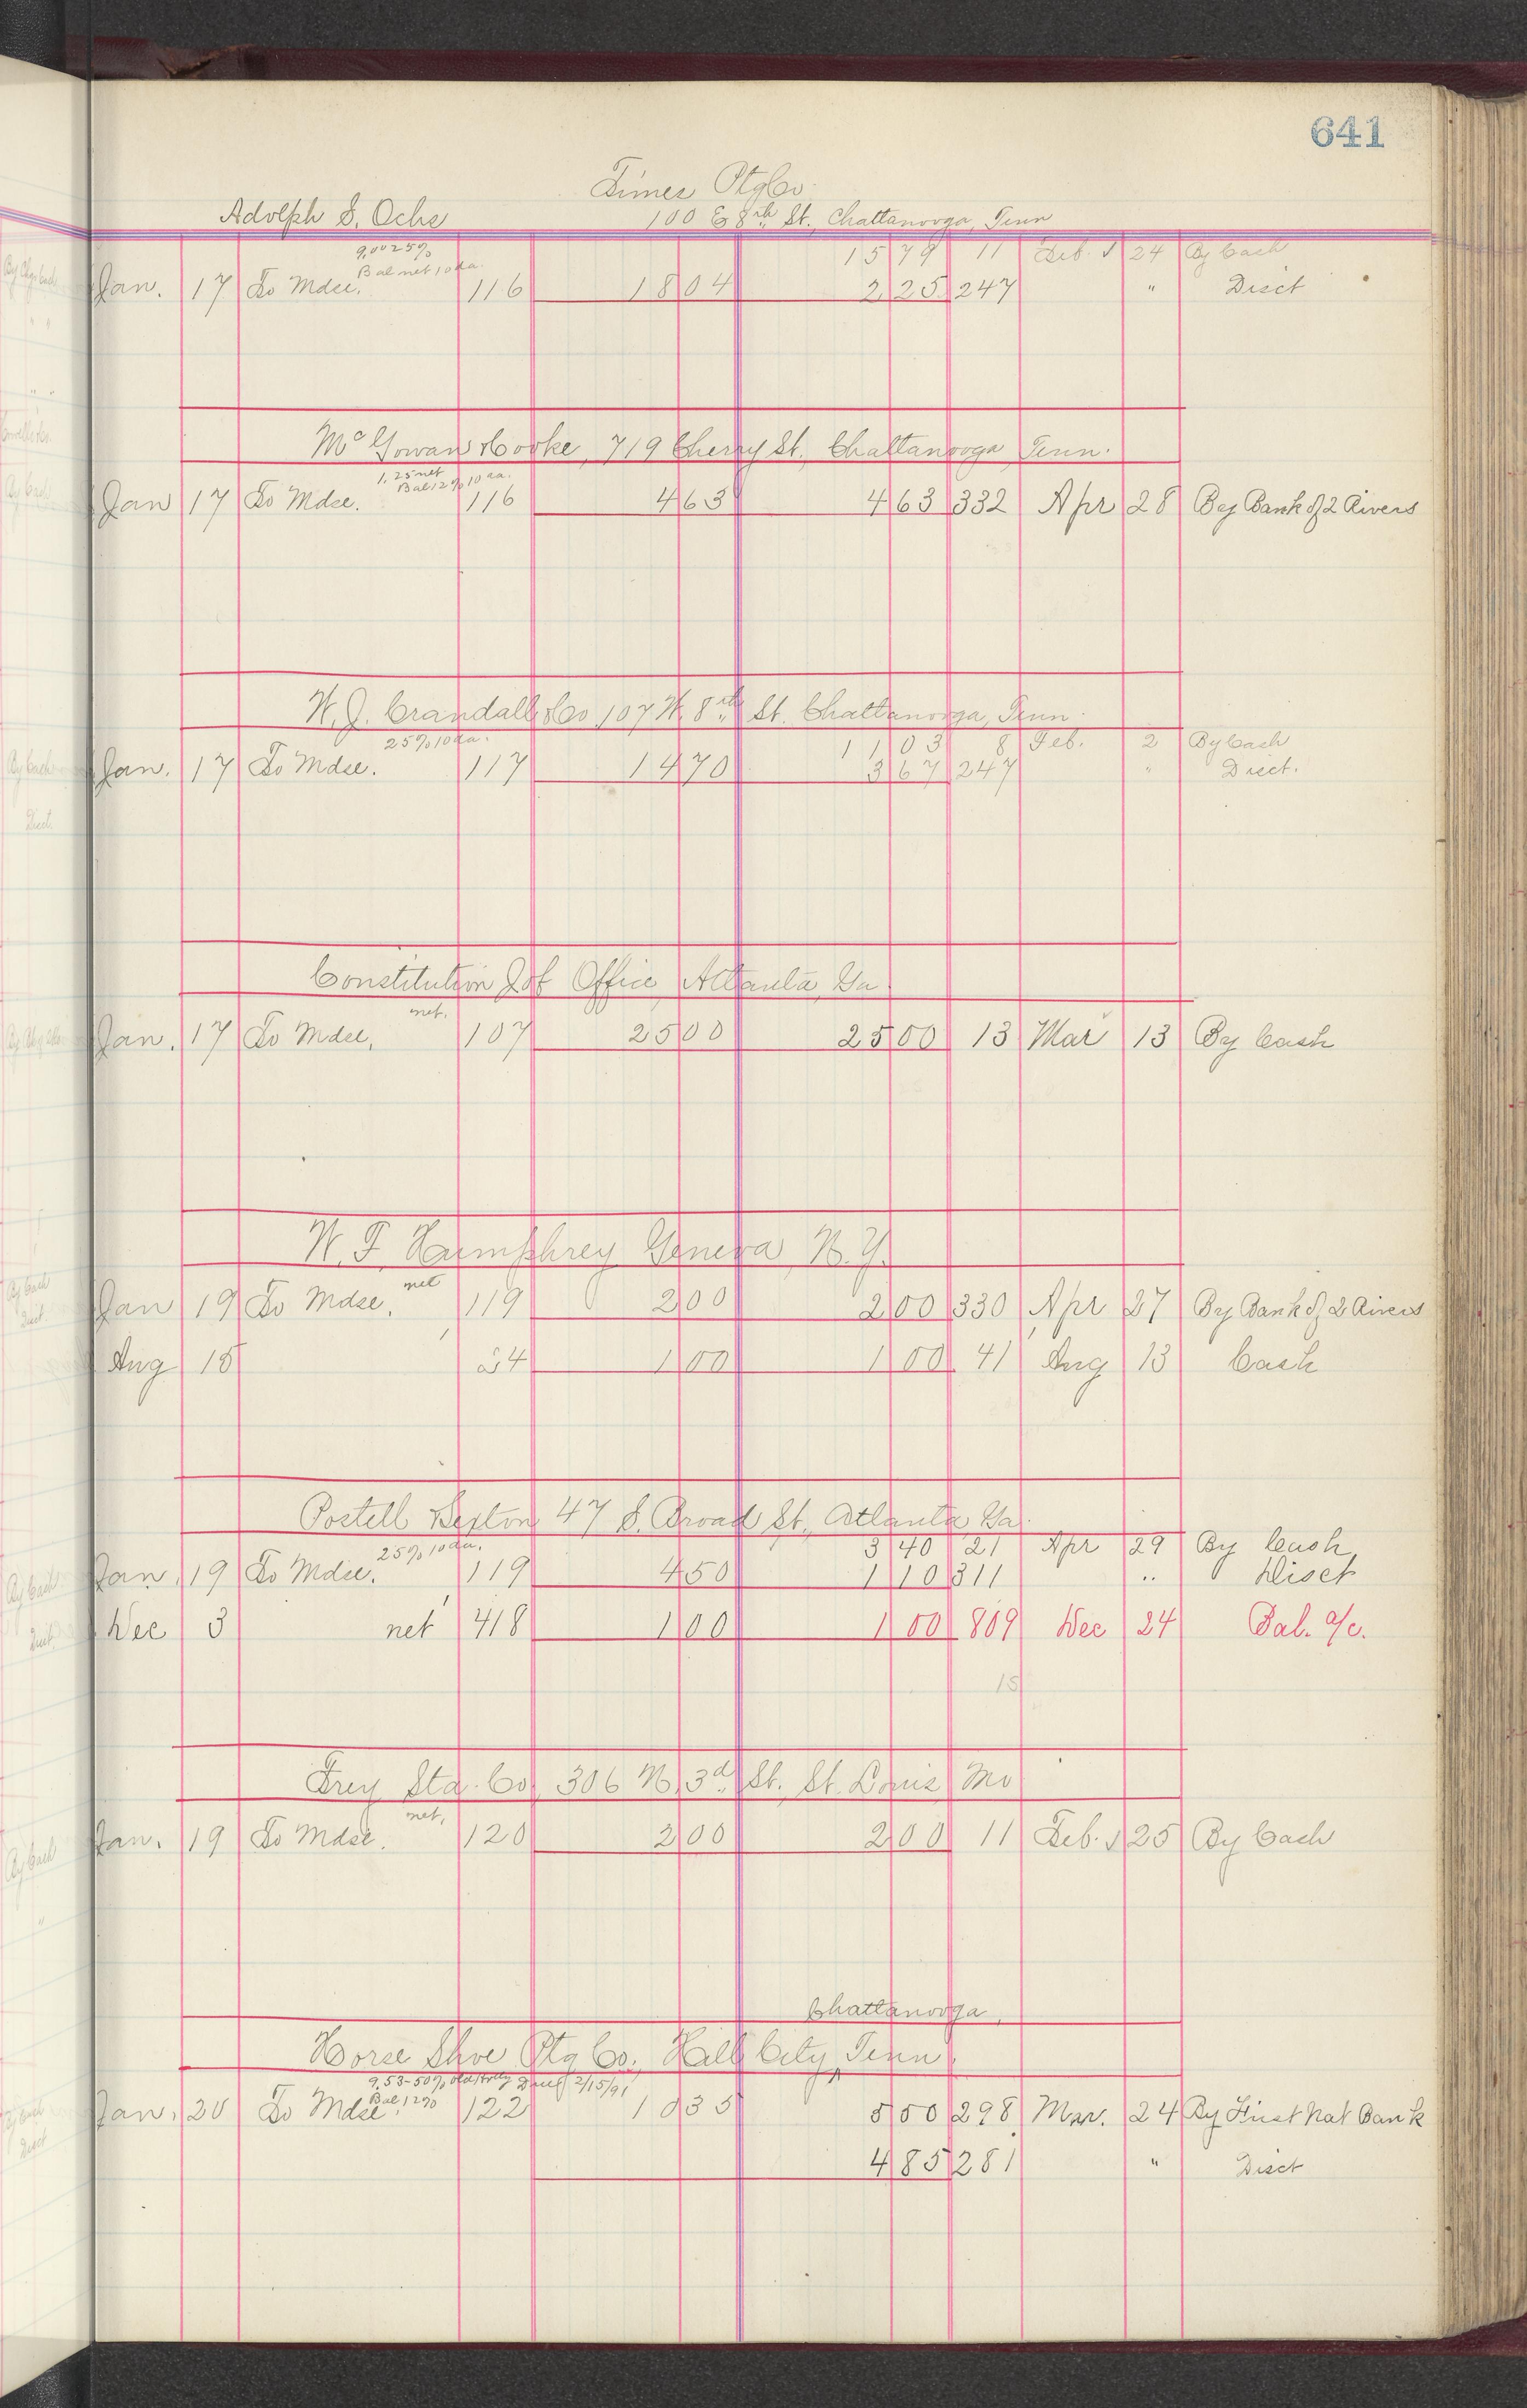 641
Times Ptg Co.
Adolph S. Ochs 100 E 8th St., Chattanooga, Tenn
9.00 25%
Bal net 10 da. 15 79 11 Feb. 24 By Cash
Jan. 17 To Mdse. 116 18 04 2 25 247 " Disct
McGowan & Cooke, 719 Cherry St., Chattanooga, Tenn.
1.25 net
Bal 12% 10 da.
Jan 17 To Mdse. 116 4 63 4 63 332 Apr 28 By Bank of 2 Rivers
W. J. Crandall & Co 107 W. 8th St. Chattanooga, Tenn.
25% 10 da. 11 03 8 Feb. 2 By Cash
Jan. 17 To Mdse. 117 14 70 3 67 247 " Disct.
Constitution Job Office, Atlanta, Ga.
net.
Jan. 17 To Mdse. 107 25 00 25 00 13 Mar 13 By Cash
W. F. Humphrey Geneva, N.Y.
net
Jan 19 To Mdse. 119 2 00 2 00 330 Apr 27 By Bank of 2 Rivers
Aug 15 24 1 00 1 00 41 Aug 13 Cash
Postell Sexton 47 S. Broad St., Atlanta, Ga.
25% 10 da. 3 40 21 Apr 29 By Cash
Jan. 19 To Mdse. 119 4 50 1 10 311 " Disct
Dec 3 net 418 1 00 1 00 809 Dec 24 Bal. a/c.
15
Frey Sta. Co. 306 N. 3d St. St. Louis, Mo
net.
Jan. 19 To Mdse. 120 2 00 2 00 11 Feb. 25 By Cash
Chattanooga,
Horse Shoe Ptg Co., Hill City, Tenn.
9.53-50% 2/15/91
Bal 12%
Jan. 20 To Mdse. 122 10 35 5 50 298 Mar. 24 By First Nat Bank
4 85 281 " Disct